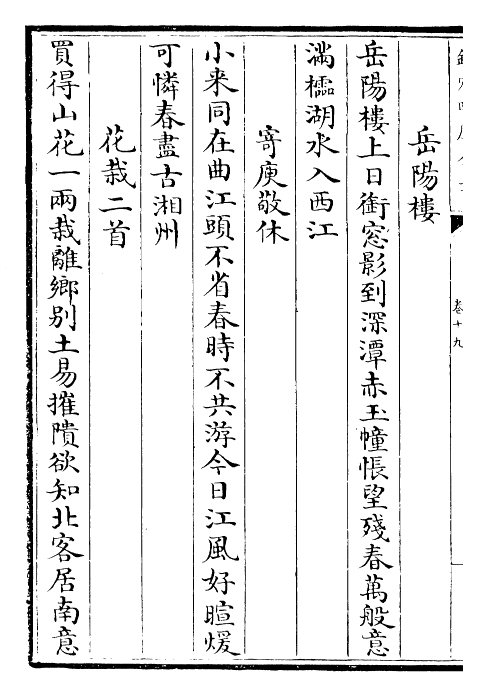 卷十九
岳陽樓
岳陽樓上日銜窓影到深潭赤玉幢悵望殘春萬般意
滿櫺湖水入西江
寄庾敬休
小来同在曲江頭不省春時不共游今日江風好暄煖
可憐春盡古湘州
花栽二首
買得山花一兩栽離鄉别土易摧隤欲知北客居南意